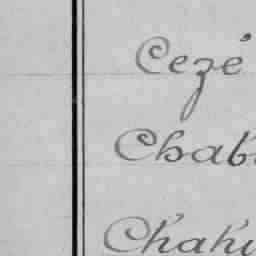 Cezé
Chab
Chahi